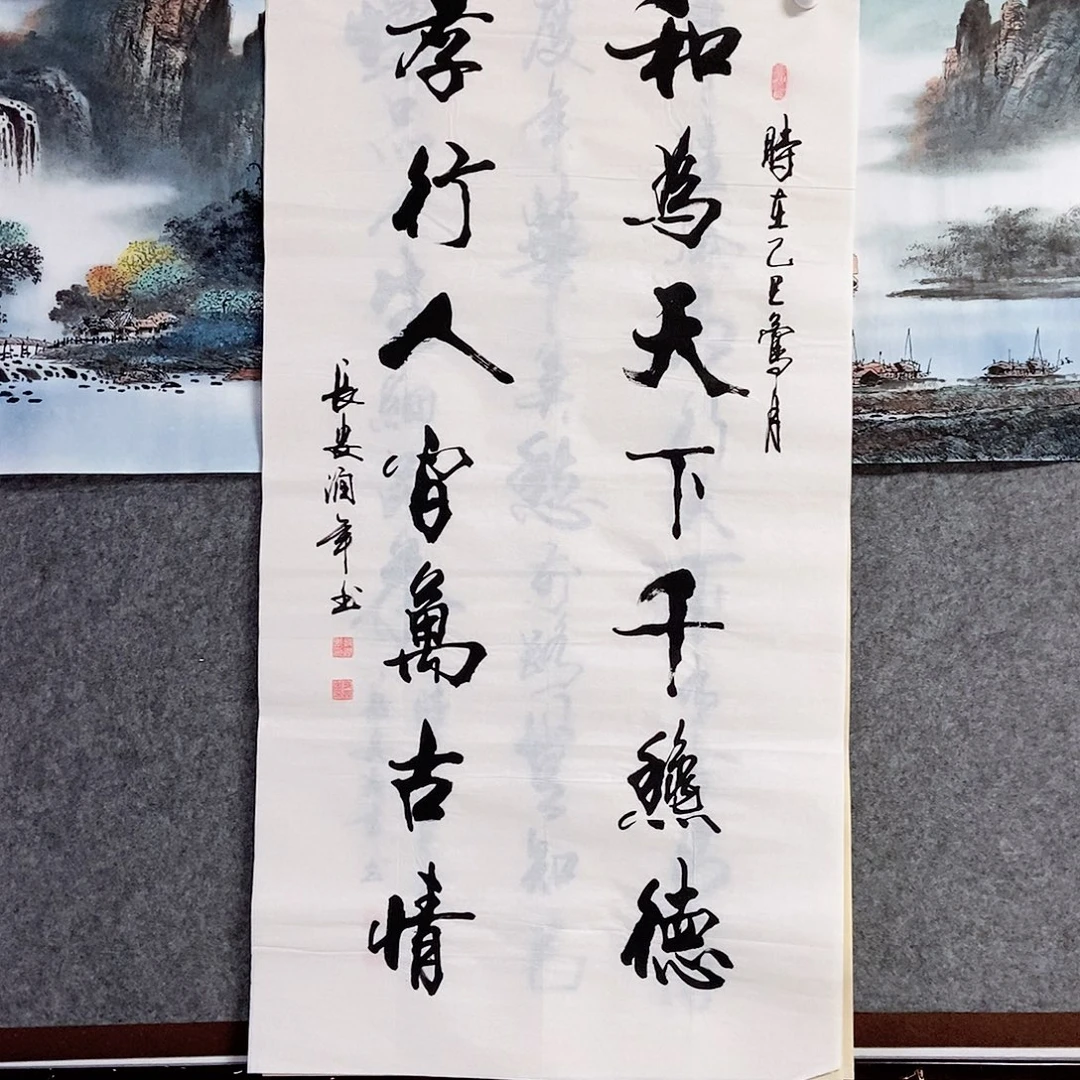 時在乙巳鶯月
和為天下千龝德
孝行人間萬古情
長安潤年书